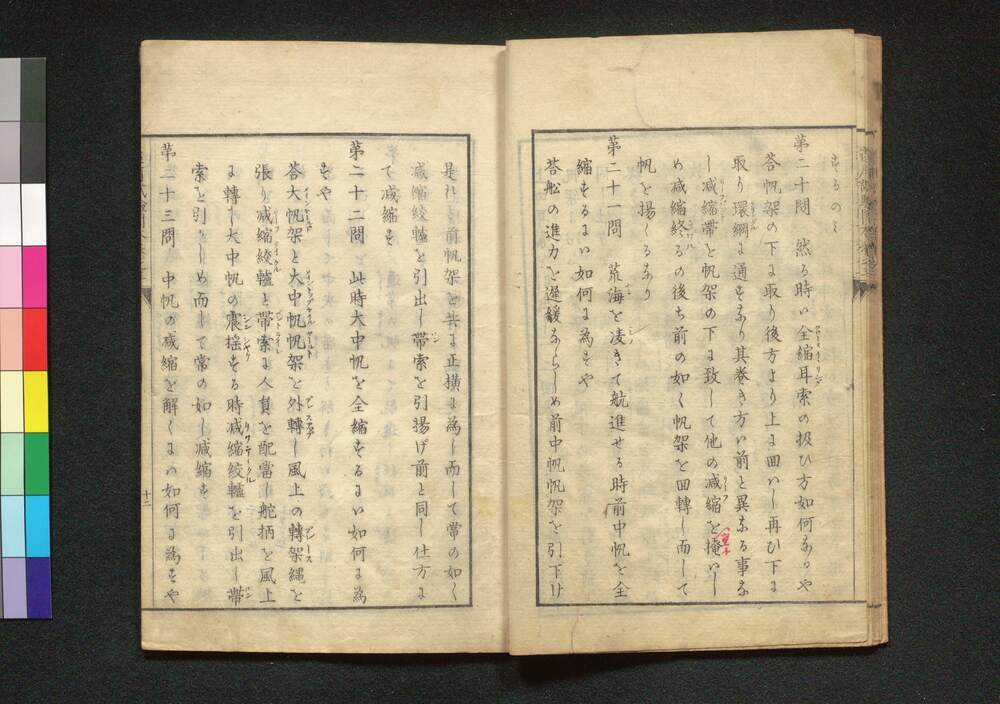 するのミ
第二十問　然る時ハ全縮耳索の扱ひ方如何なるや
答帆架の下に取り後方より上に回ハし再ひ下に
取り環綱に通すなり其巻き方ハ前と異なる事な
し减縮帯を帆架の下に致して他の减縮を掩ハし
め减縮終るの後ち前の如く帆架を回轉し而して
帆を揚くるなり
第二十一問　荒海を凌きて航進せる時前中帆を全
縮するにハ如何に為すや
答舩の進力を遲緩ならしめ前中帆帆架を引下け
是れ前帆架と共に正横に為し而して常の如く
减縮絞轤を引出し帯索を引揚け前と同し仕方に
て减縮を
第二十二問　此時大中帆を全縮するにハ如何に為
すや
答大帆架と大中帆帆架を外轉し風上の轉架縄を
張り减縮絞轤と帯索に人員を配當し舵柄を風上
に轉し大中帆の震揺する時减縮絞轤を引出し帯
索を引かしめ而して常の如し减縮す
第二十三問　中帆の减縮を解くにハ如何に為すや
十二